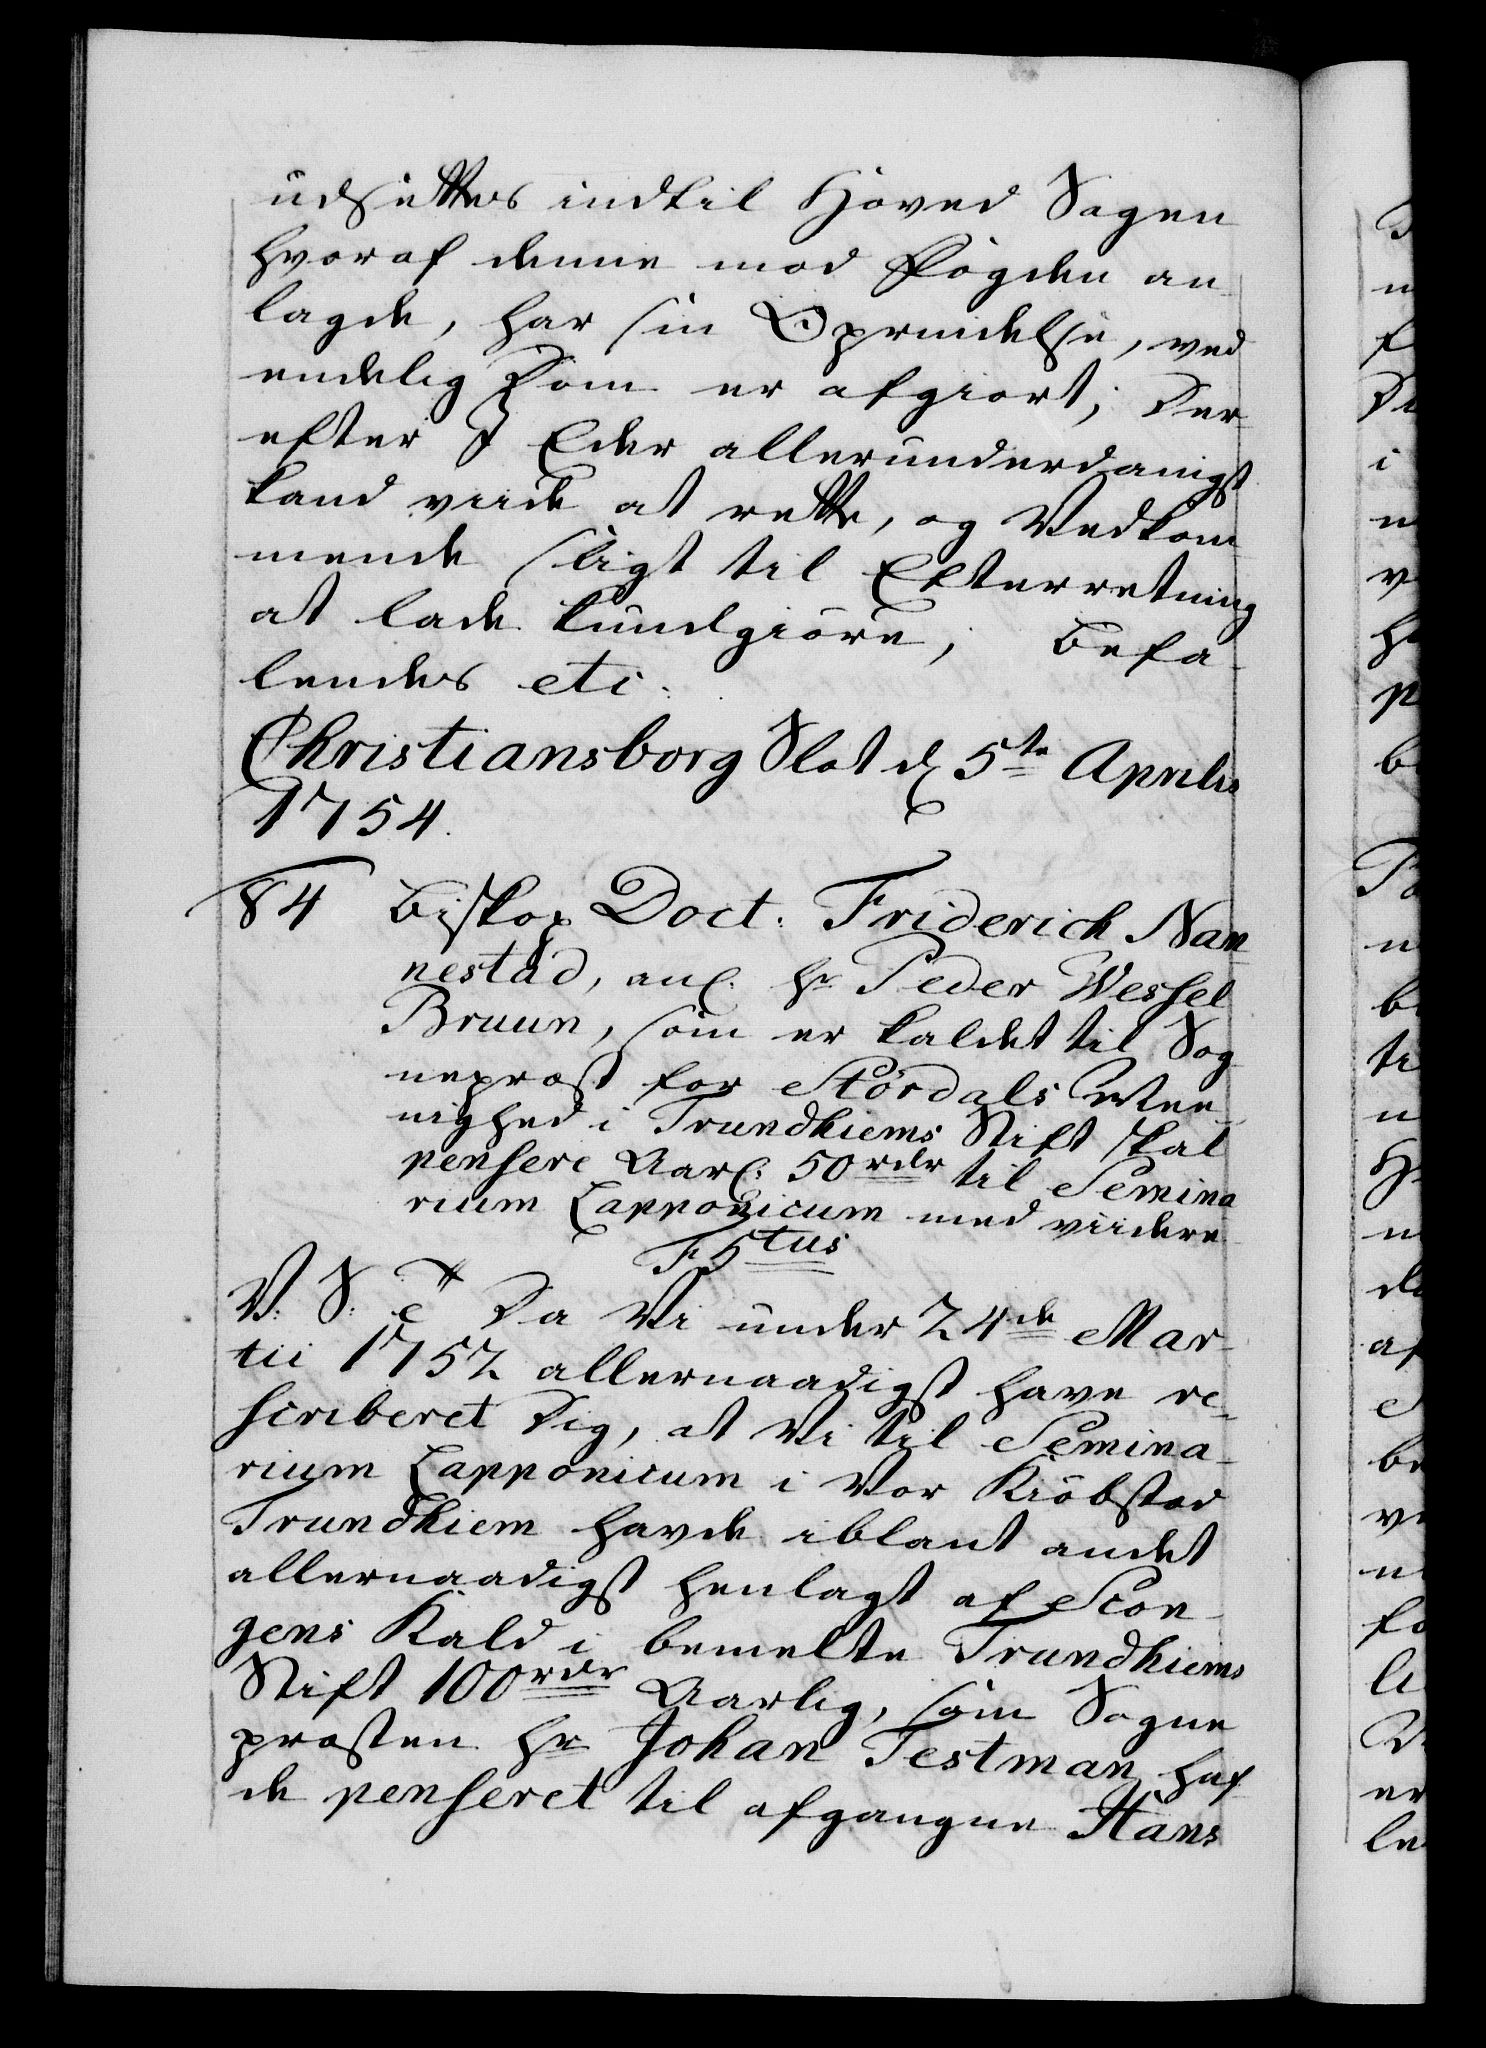 udsættes indtil Hoved Sagen
hvoraf denne mod Fogden an-
lagde, har sin Oprindelse, ved
endelig Dom er afgiort; Der-
efter I Eder allerunderdanigst
kand viide at rette, og Vedkom-
mende sligt til Efterretning
at lade kundgiøre; Befa-
lendes etc.
Christiansborg Slot d 5te Aprilis
1754.
84 Biskop Doct: Friderich Nan-
nestad, anl. Hr Peder Wessel
Bruun, som er kaldet til Sog-
neprest for Stördals Mee-
nighed i Trundhiems Stift skal
pensere Aarl: 50 rdr til Semina-
rium Lapponicum med viidere
F 5tus
V. S. G Da Vi under 24de Mar-
tii 1752 allernaadigst have re-
scriberet Dig, at Vi til Semina-
rium Lapponicum i Vor Kiöbstad
Trundhiem havde iblant andet
allernaadigst henlagt af Scon-
gens Kald i bemelte Trundhiems
Stift 100 rdr Aarlig, som Sogne-
presten Hr Johan Testman haf-
de penseret til afgangne Hans